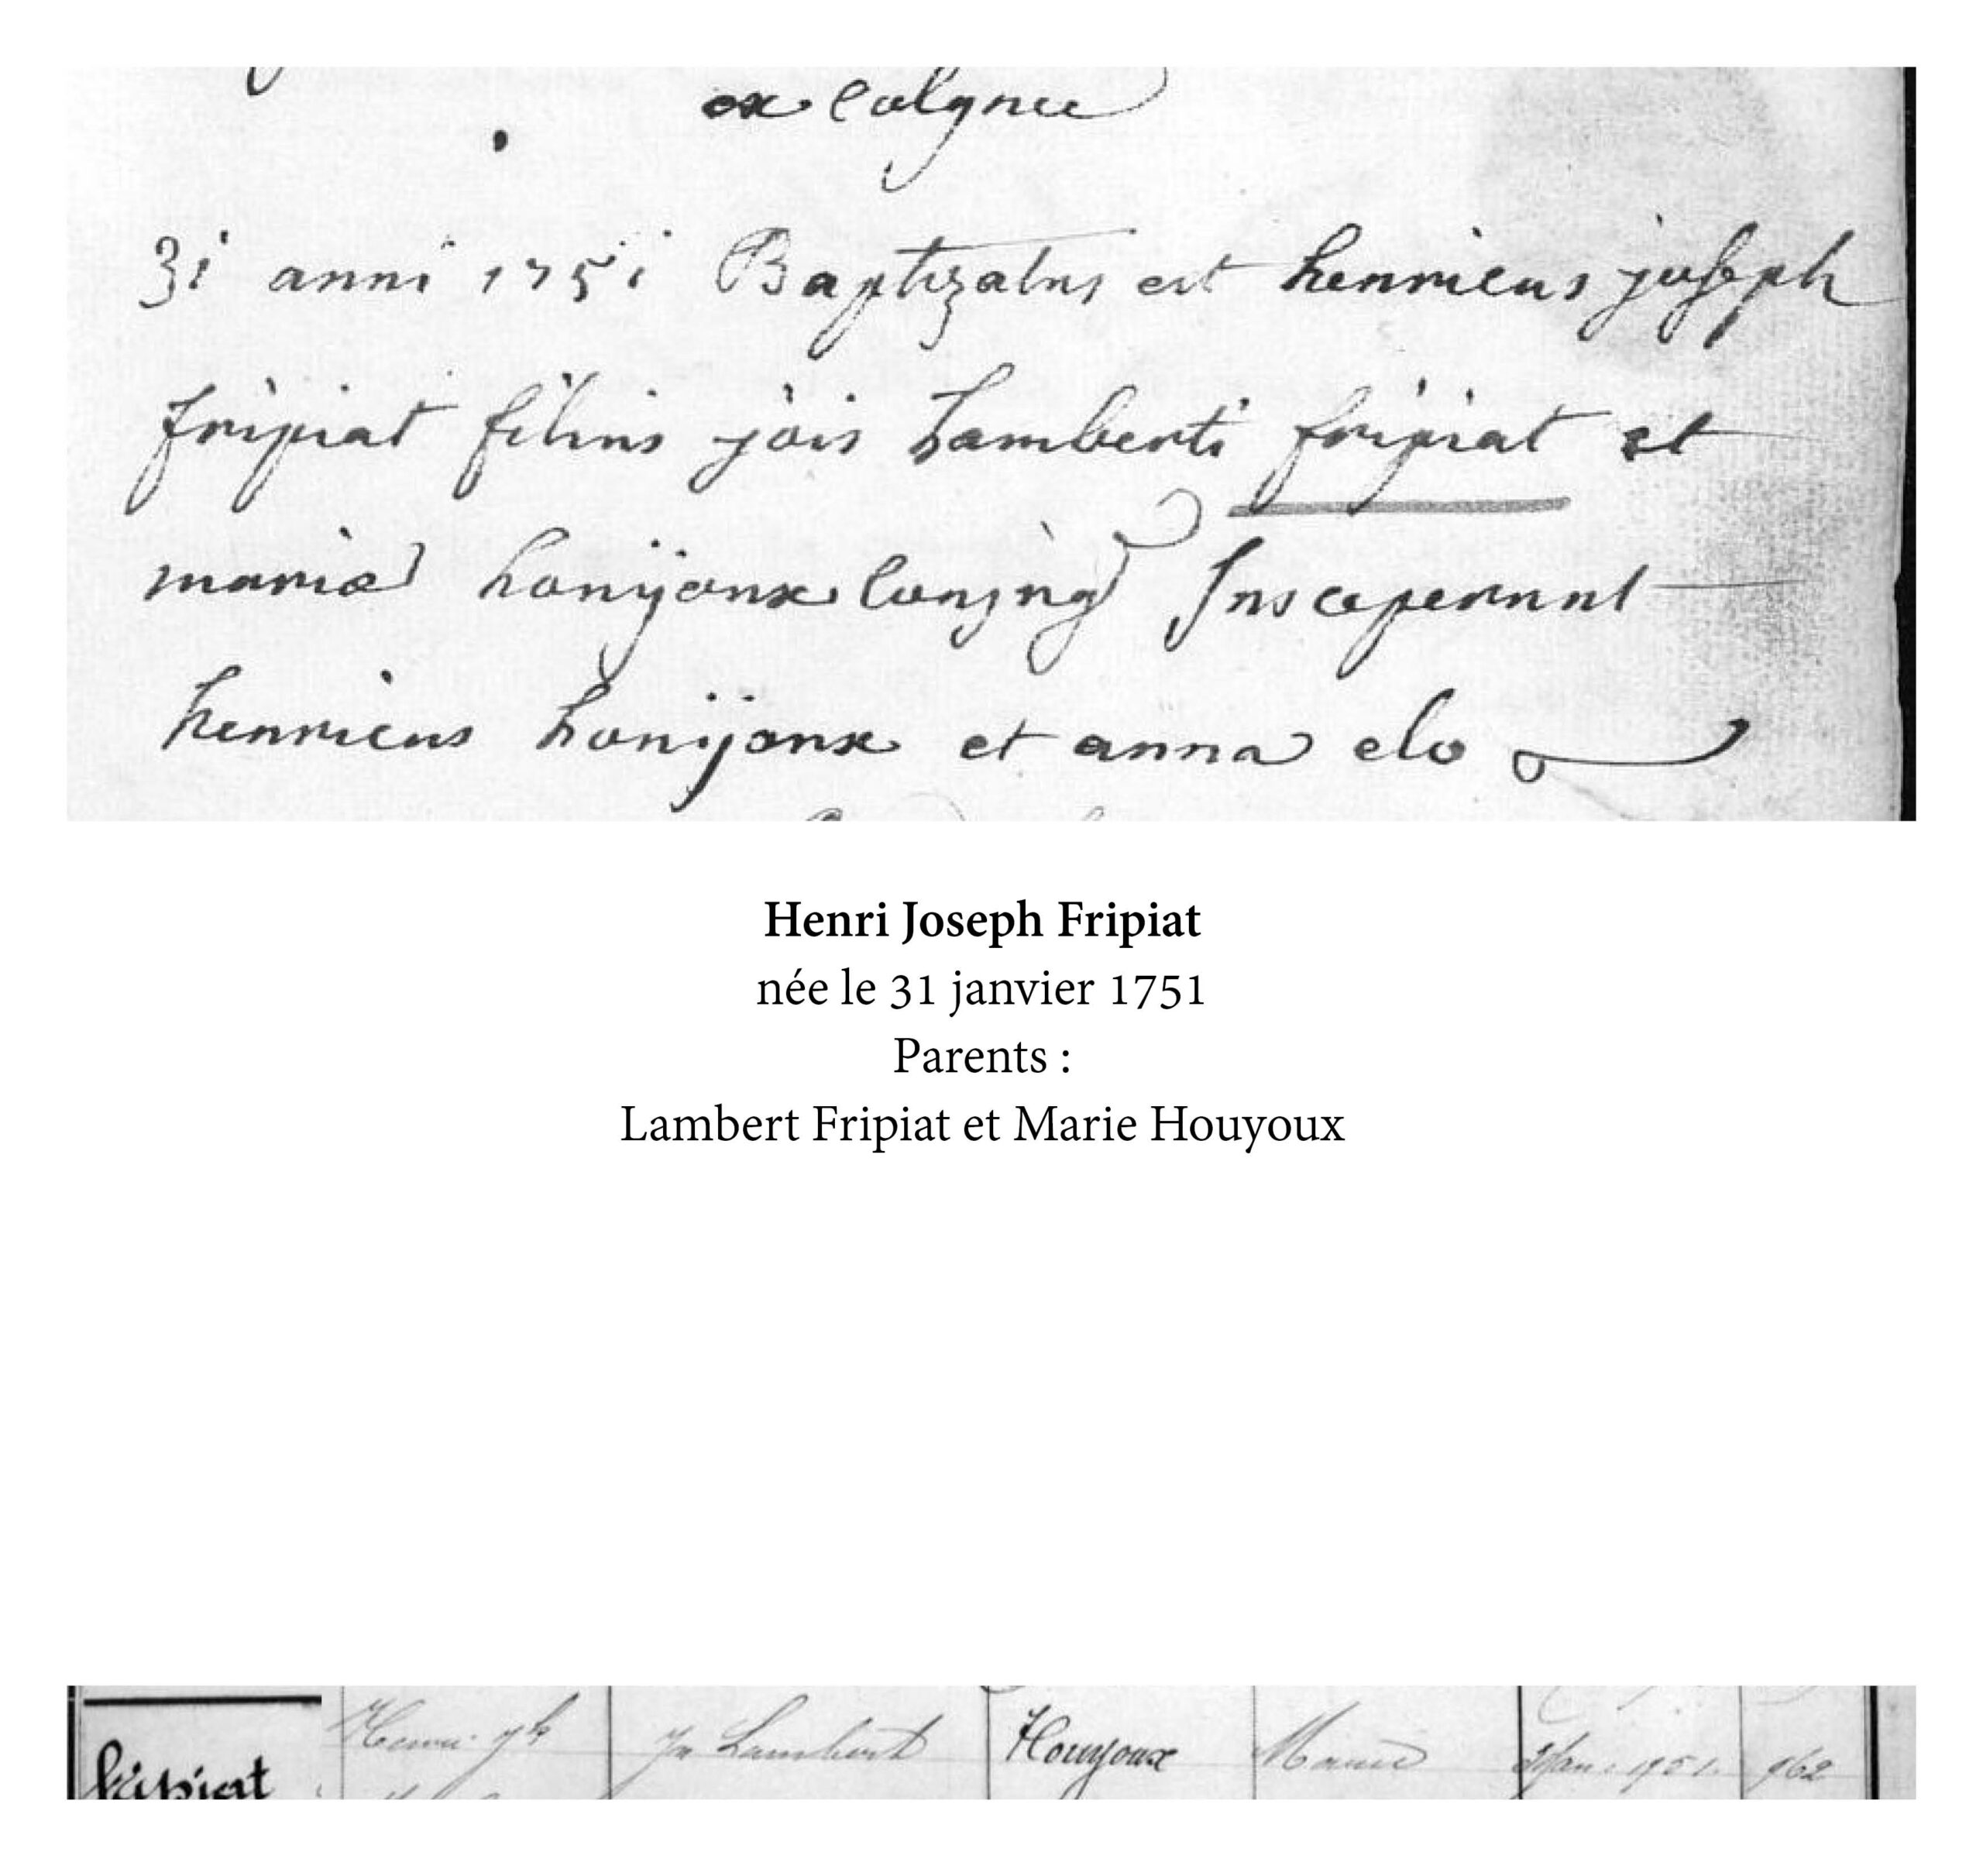 ex
31 anni 1751 Baptizatus est henricus joseph
fripiat filius jois Lamberti fripiat et
maria houijoux Susceperunt
henricus houijoux et anna elo
Henri Joseph Fripiat
née le 31 janvier 1751
Parents :
Lambert Fripiat et Marie Houyoux
fripiat Henri jph Jn Lambert Houyoux Marie 31 Jan. 1751. 962